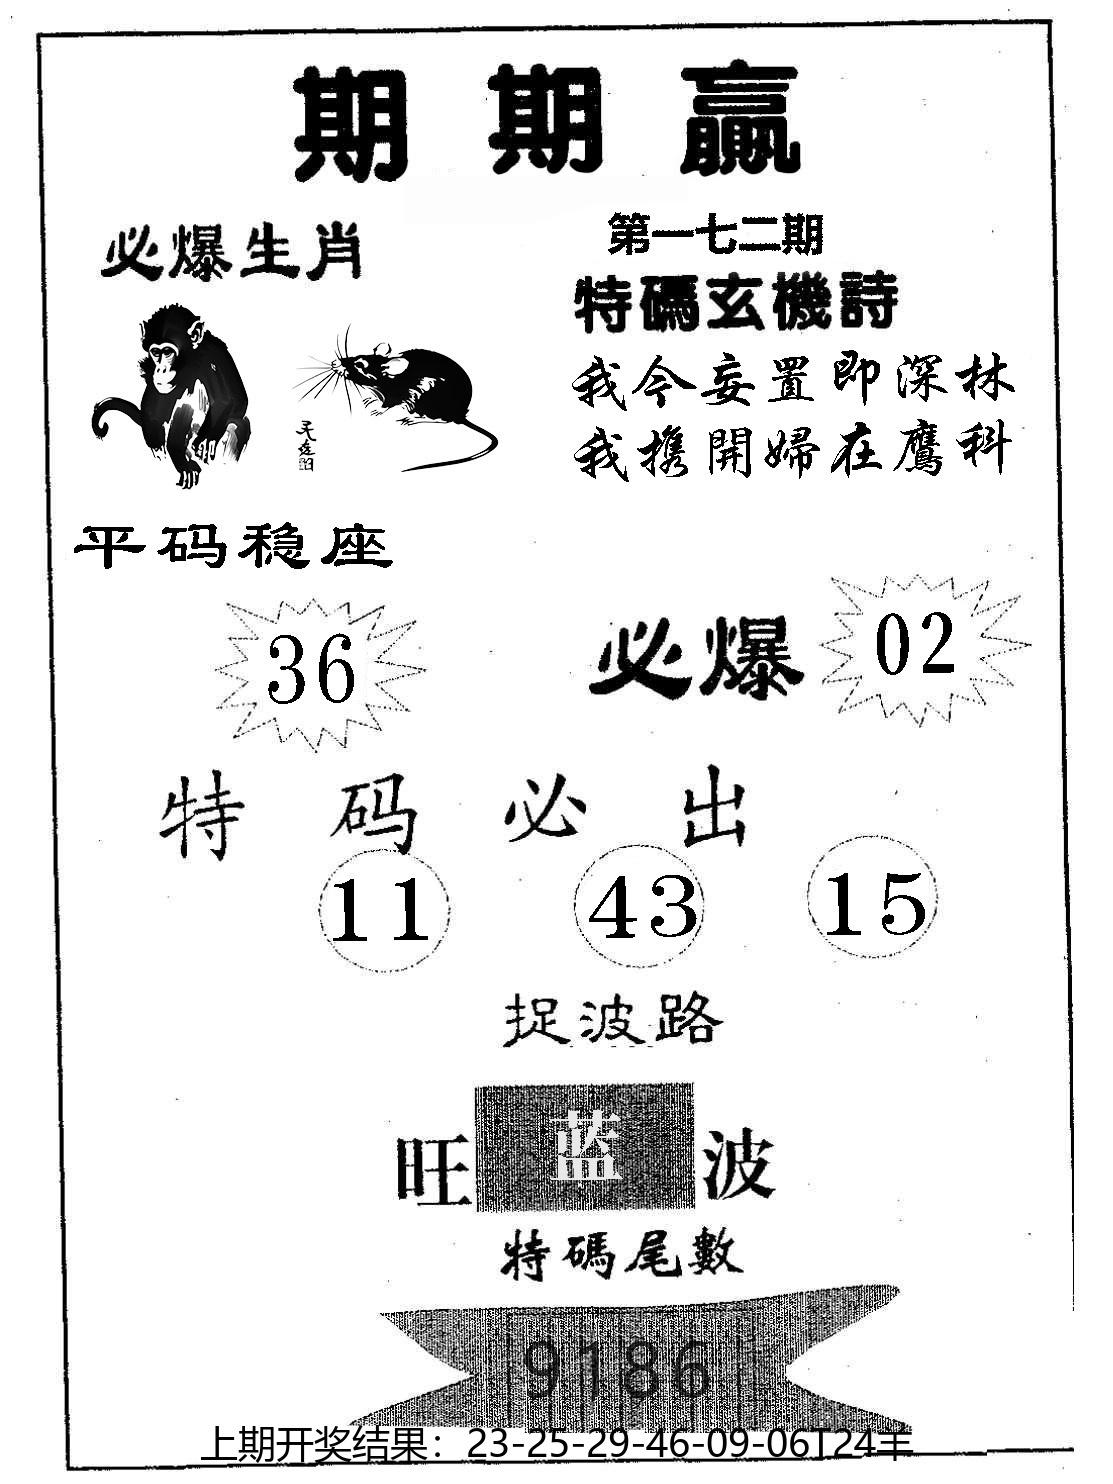 期期贏
必爆生肖
第一七二期
特碼玄機詩
我今妄置即深林
我携開婦在鷹科
平码稳座
36
必爆
02
特码必出
11 43 15
捉波路
旺蓝波
特碼尾數
9186
上期开奖结果：23-25-29-46-09-06T24羊